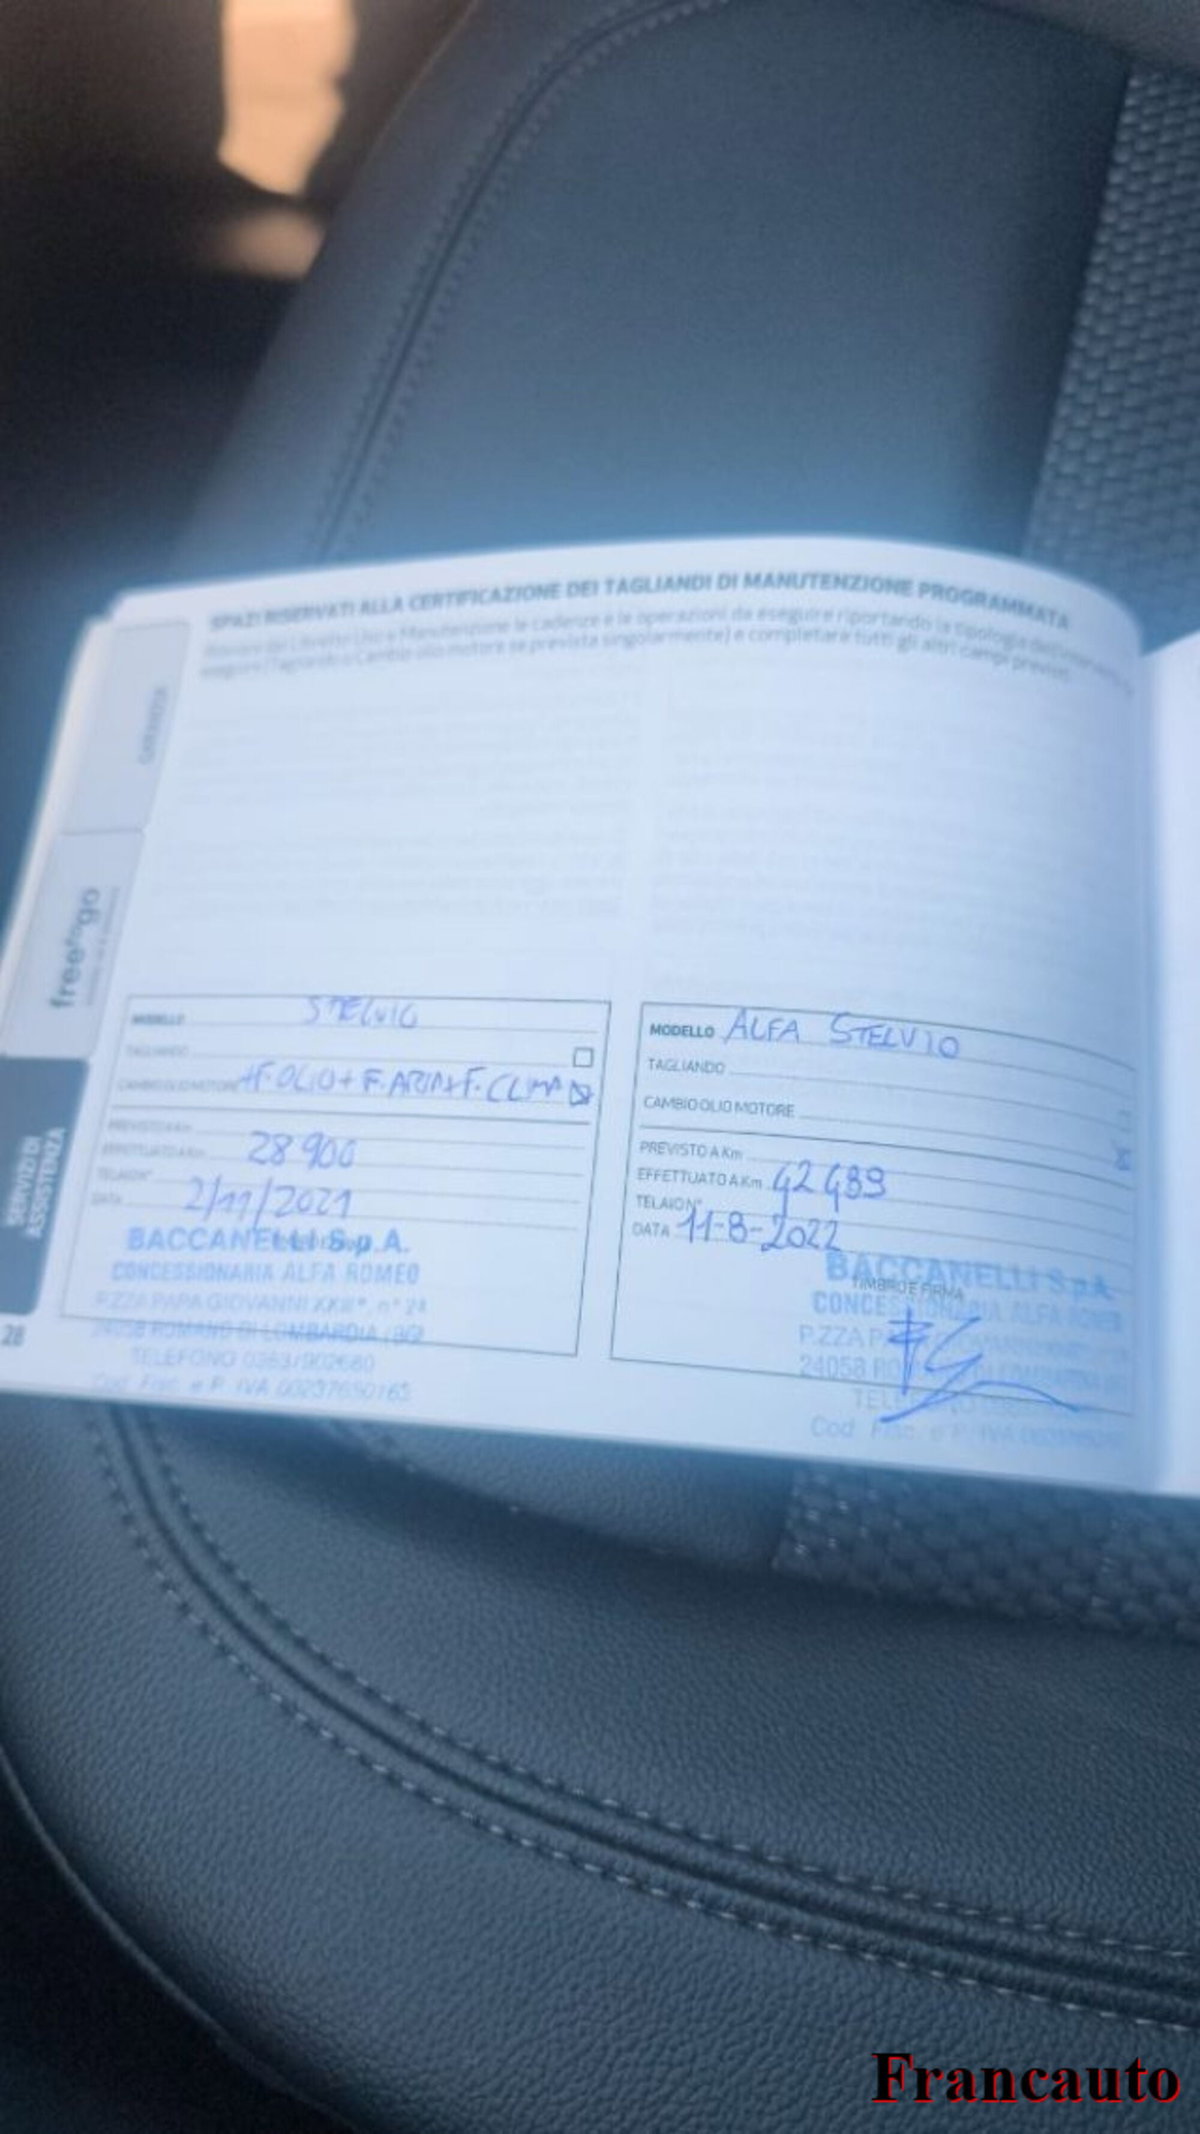 SPAZI RISERVATI ALLA CERTIFICAZIONE DEI TAGLIANDI DI MANUTENZIONE PROGRAMMATA
le cadenze e le operazioni da eseguire riportando la tipologia
Cambio olio motore se prevista singolarmente) e completare tutti gli altri campi previsti
GARANZIA
free go
SERVIZI DI
ASSISTENZA
28
MODELLO STELVIO
TAGLIANDO
CAMBIO OLIO MOTORE +F.OLIO+F.ARIA+F.CLIMA
PREVISTO A Km
EFFETTUATO A Km 28900
TELAIO N°
DATA 2/11/2021
BACCANELLI S.p.A.
CONCESSIONARIA ALFA ROMEO
P.ZZA PAPA GIOVANNI XXIII°, n° 21
24058 ROMANO DI LOMBARDIA (BG)
TELEFONO 0363/902680
Cod. Fisc. e P. IVA
MODELLO ALFA STELVIO
TAGLIANDO
CAMBIO OLIO MOTORE
PREVISTO A Km
EFFETTUATO A Km 42489
TELAIO N°
DATA 11-8-2022
TIMBRO E FIRMA
BACCANELLI S.p.A.
CONCESSIONARIA ALFA ROMEO
P.ZZA
24058
Cod. Fisc. e P. IVA
Francauto